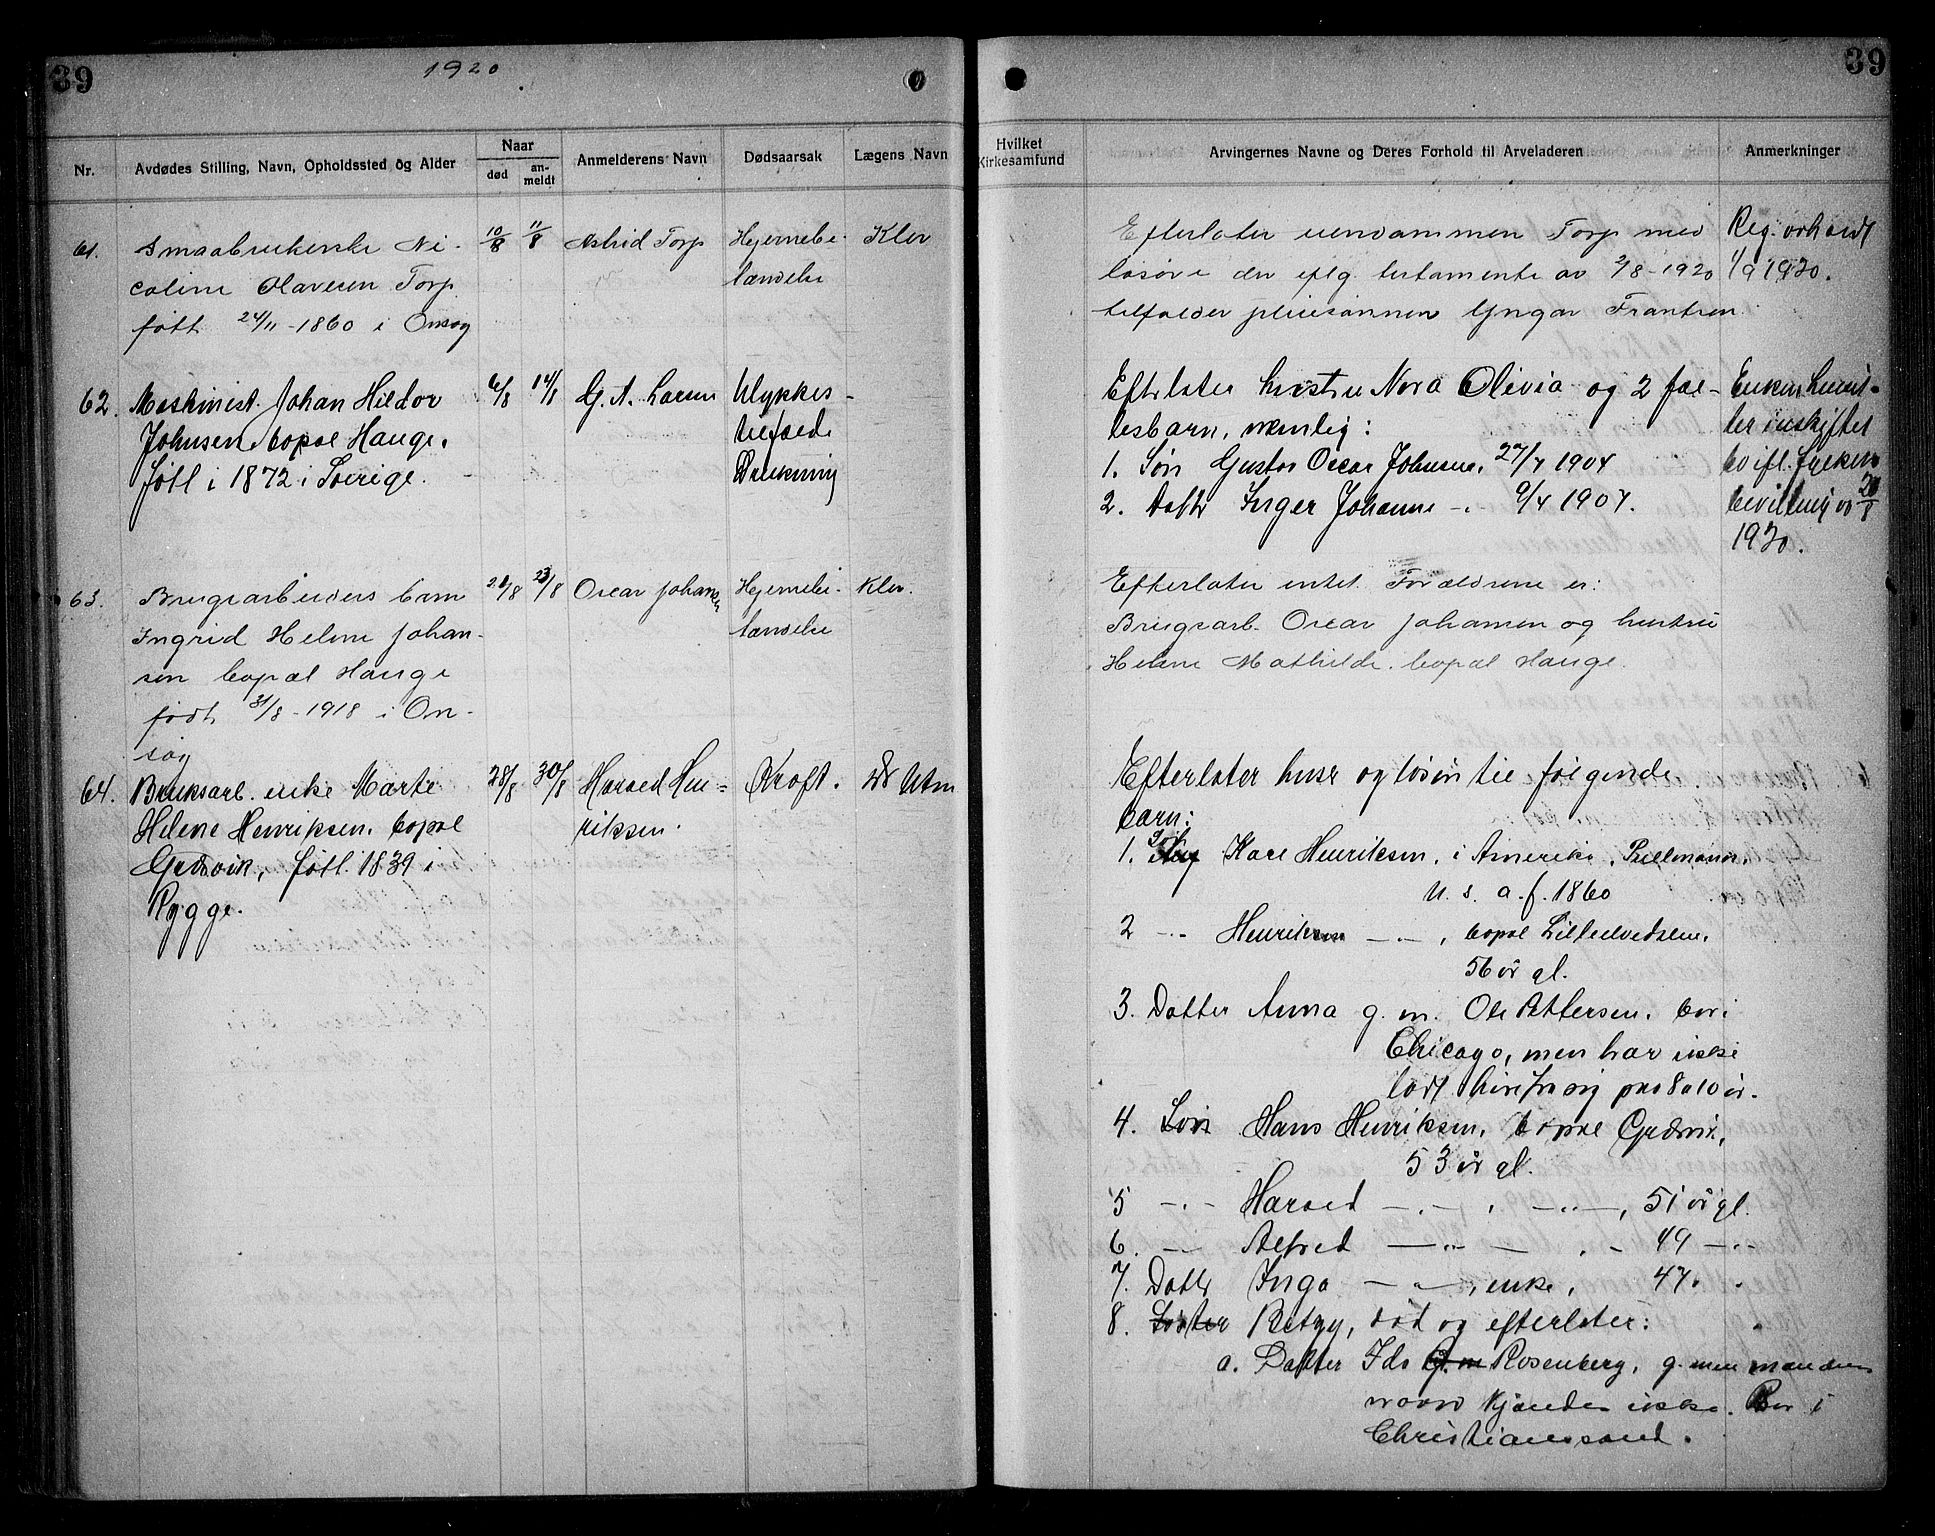 39
1920
39
Nr.
Avdødes Stilling, Navn, Opholdssted og Alder
Naar
død
an-
meldt
Anmelderens Navn
Dødsaarsak
Lægens Navn
Hvilket
Kirkesamfund
Arvingernes Navne og Deres Forhold til Arveladeren
Anmerkninger
61.
Smaabrukerske Ni-
coline Olavesen Torp
født 24/11-1860 i Onsøy
10/8
11/8
Astrid Torp
Hjernebe-
tændelse
Klev
Efterlater eiendommen Torp med
løsøre der iflg. testamente av 2/8-1920
tilfalder pleiesønnen Yngar Frantsen
Reg. avholdt
1/9 1920.
62.
Maskinist Johan Hildor
Johnsen bopæl Hauge.
Født i 1872 i Sverige.
6/8
14/8
G. A. Larsen
Ulykkes-
tilfælde
Drukning
Efterlater hustru Nora Olivia og 2 fæl-
lesbarn, nemlig:
1. Søn Gustav Oscar Johnsen, 27/7 1904
2. Datter Inger Johanne -"- 9/4 1907.
Enken hensit-
ter i uskiftet
bo ifl. fylkem.
bevilling av 20/8
1920.
63.
Brugsarbeiders barn
Ingrid Helene Johan-
sen bopæl Hauge
født 31/8-1918 i On-
søy
21/8
23/8
Oscar Johansen
Hjernebe-
tændelse
Klev.
Efterlater intet. Forældrene er:
Brugsarb. Oscar Johansen og hustru
Helene Mathilde bopæl Hauge.
64.
Bruksarb. enke Marte
Helene Henriksen, bopæl
Græsvik, født 1839 i
Rygge.
28/8
30/8
Harald Hen-
riksen.
Kræft.
Dr Utne
Efterlater huse og løsøre til følgende
barn:
1. Søn Karl Henriksen, i Amerika,
U. S. A. f. 1860
2 -"- Henriksen -"-, bopæl
56 år gl.
3. Datter Anna g. m. Ole Pettersen. bor i
Chicago, men har ikke
latt høre fra sig paa 8 a 10 år.
4. Søn Hans Henriksen, bopæl Græsvik,
53 år gl.
5 -"- Harald -"-, -"-, 51 år gl.
6. -"- Alfred -"-, - 49 -"-
7. Datter Inga -"-, enke, 47 "
8. Søster Betzy, død og efterlater:
a. Datter Ida G. m Rosenberg, g. men mandens
navn kjendes ikke. Bor i
Christianssand.